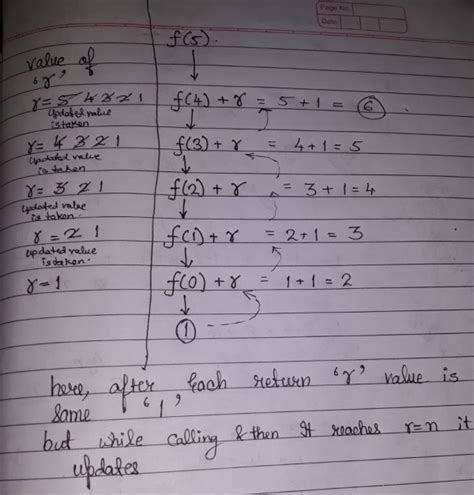 Page No.
Date
f(5).
value of
'r'
r = 5 4 3 2 1
updated value
is taken
f(4) + r = 5 + 1 = 6
r = 4 3 2 1
updated value
is taken
f(3) + r = 4 + 1 = 5
r = 3 2 1
updated value
is taken.
f(2) + r = 3 + 1 = 4
r = 2 1
updated value
is taken.
f(1) + r = 2 + 1 = 3
r = 1
f(0) + r = 1 + 1 = 2
1
here, after each return 'r' value is
same '1'
but while calling & then It reaches r=n it
updates